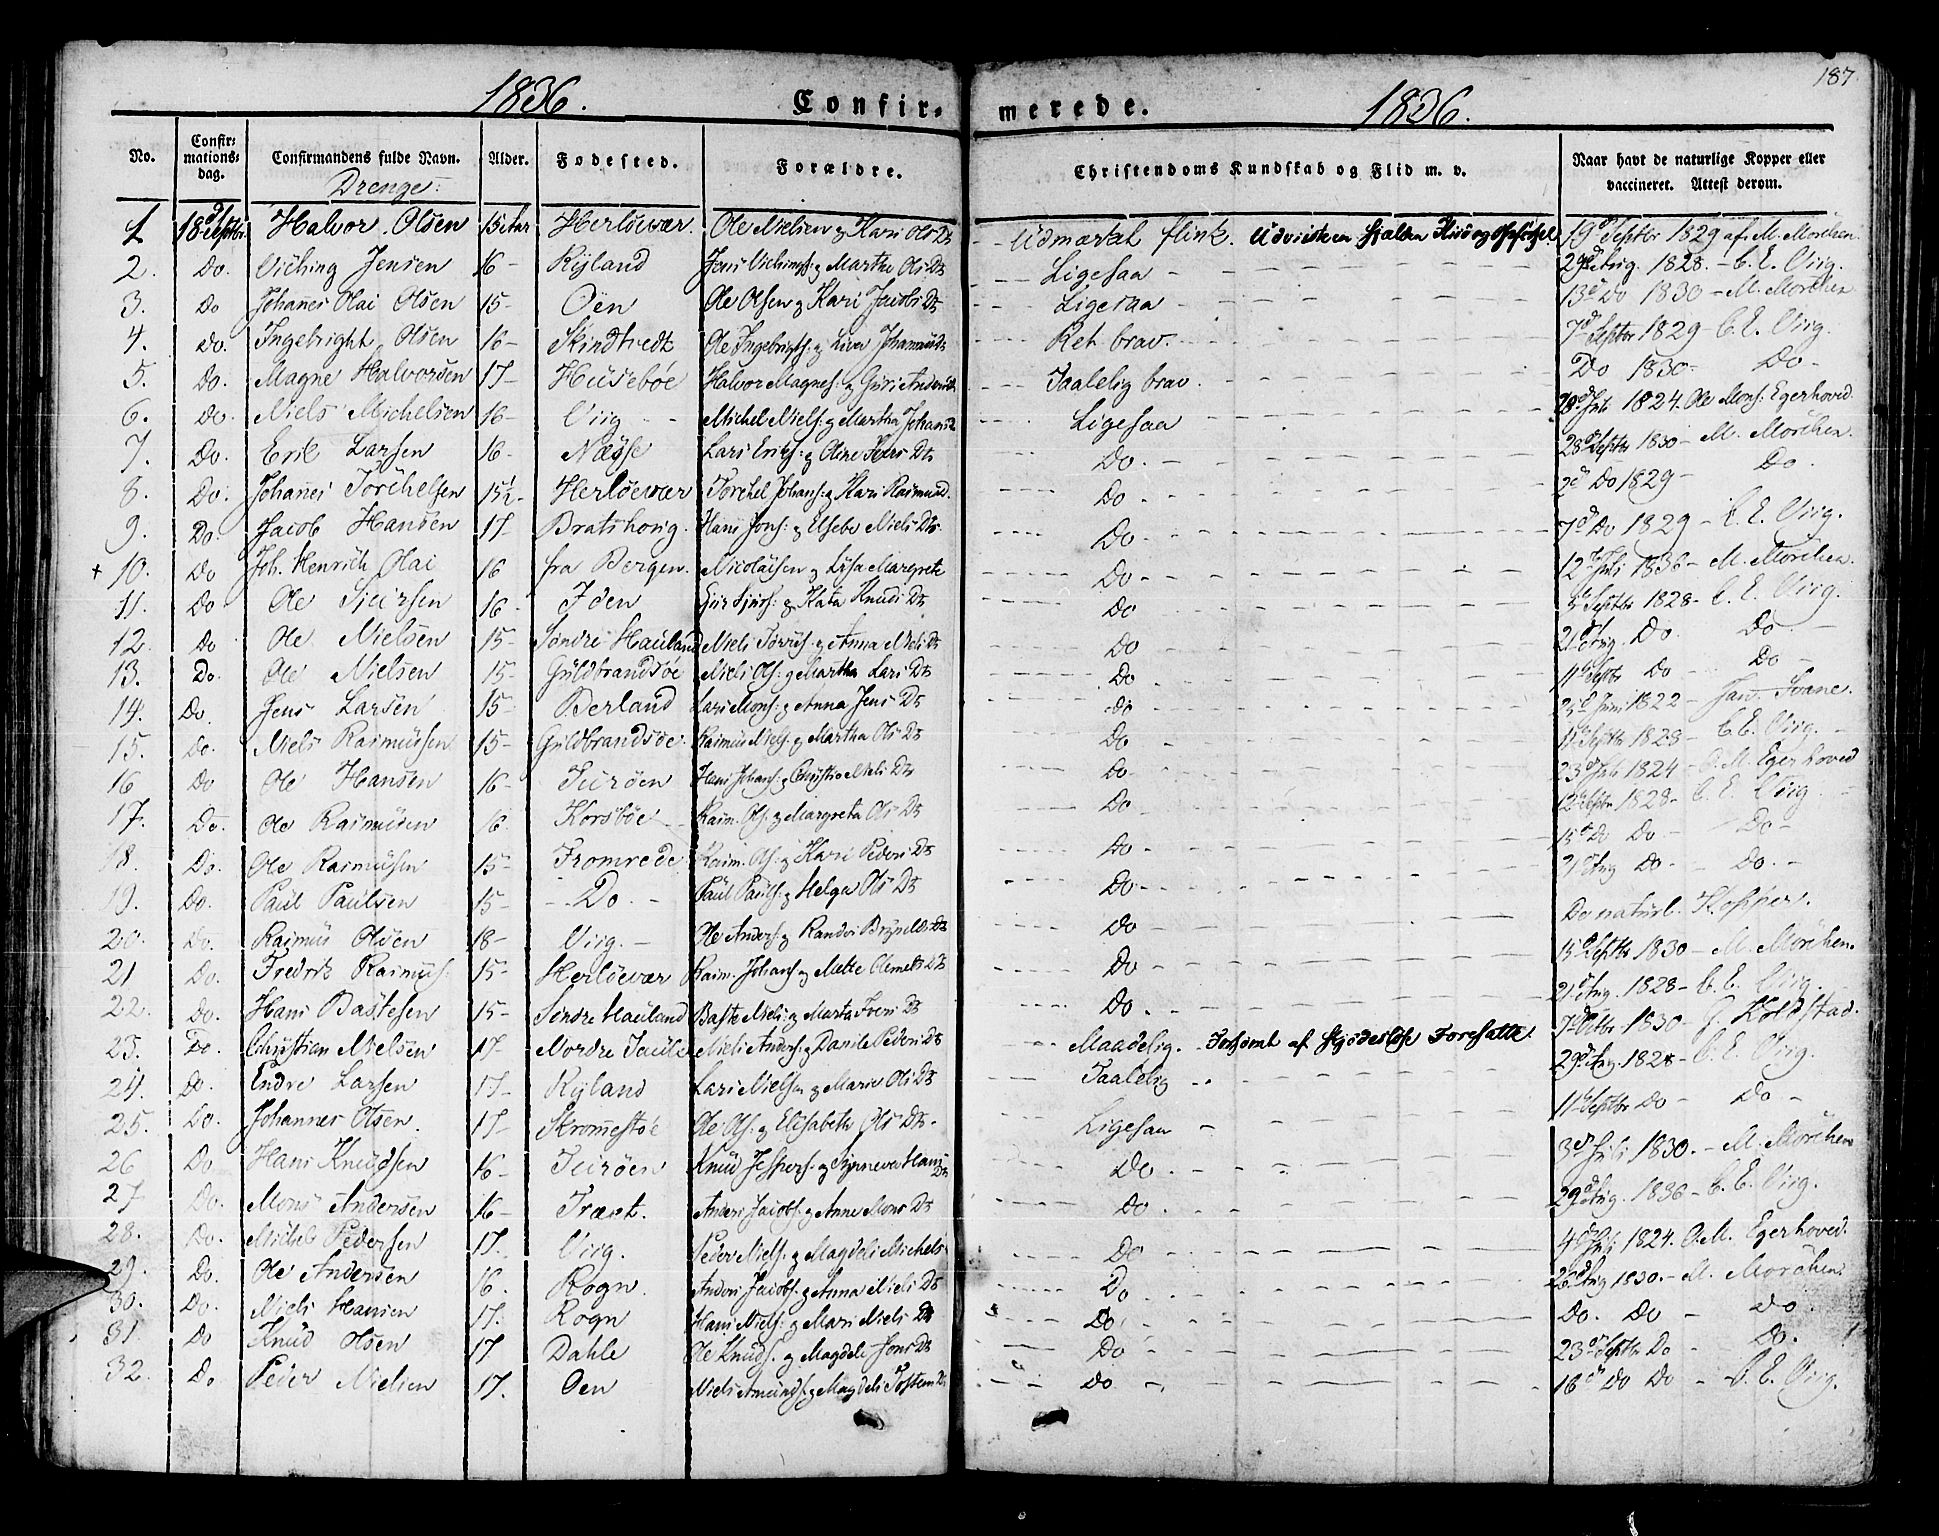 187
1836. Confir- merede. 1836.
No. Confirmationsdag. Confirmandens fulde Navn. Alder. Fødested. Forældre. Christendoms Kundskab og Flid m. v. Naar havt de naturlige Kopper eller vaccineret. Attest derom.
Drenge:
1 18d Septbr Halvor Olsen 15 Aar Herløevær Ole Nielsen og Kari Ols Dt Udmærket flink. 19d Septbr 1829 af M. Mørchen.
2. Do. Viching Jensen 16 Ryland Jens Vichings: og Marthe Ols Dt Ligesaa 29d Aug. 1828. C. E. Viig.
3. Do Johanes Olai Olsen 15 Oen Ole Olsen og Kari Jacobs Dt Ligesaa 13d Do 1830 M. Mørchen
4. Do. Ingebright Olsen 16 Ole Ingebrigts: og Ret brav. 7d Septbr 1829 C. E. Viig.
5. Do. Magne Halvorsen 17 Husebøe Halvor Magnes: og Guri Anders Taalelig brav. Do 1830 Do
6. Do. Niels Michelsen 16 Viig Michel Niels: og Martha Johans Ligesaa Juli 1824. Ole Mons: Egerhoved
7. Do. Erik Larsen 16 Næsse Lars Eriks: og Oline Do. 28d Septbr 1830 M. Mørchen.
8. Do. Johanes Torchelsen 15½ Herløevær Torchel Johans: og Kari Rasmusd. Do 2d Do 1829 Do.
9. Do. Jacob Hansen 17 Bratshoug. Hans Jons: og Elsebe Niels Dt. Do. 7d Do 1829 C. E. Viig.
+ 10. Do Joh. Henrich Olai 16 fra Bergen. Nicolaisen og Lisa Margrete Do. 12d Juli 1836 M. Mørchen.
11. Do Ole Sjursen 16 Kata Knuds Dt Do Septbr 1828 C. E. Viig.
12. Do Ole Nielsen 15 Søndre Hauland Niels og Anna Niels Dt Do 21d Aug. Do. Do.
13. Do. Ole Nielsen 15 Guldbrandsøe Niels Ols: og Martha Lars Dt Do 11d Septbr Do Do
14. Do. Jens Larsen 15 Berland Lars Mons: og Anna Jens Dt do Juni 1822
15. Do. Niels Rasmussen 15 Guldbrandsøe. Rasmus Niels: og Martha Ols Dt Do Septbr 1828 C. E. Viig.
16 Do Ole Hansen 16 Hans Johans: og Niels Dt Do 23d Juli 1824 O. M. Egerhoved
17. Do. Ole Rasmusen 16. Korsbøe Rasm. Ols: og Margreta Ols Dt Do 12d Septbr 1828 C. E. Viig.
18. Do. Ole Rasmusen 15 Fromrede Rasm. Ols: og Kari Peders Dt Do 15d Do Do Do
19. Do. Paul Paulsen 15 Do Paul Pauls: og Helga Ols Dt Do Aug Do Do.
20. Do. Rasmus Olsen 18 Viig. Ole Anders: og Randvi Do Do naturl. Kopper.
21 Do. Fredrik Rasmus: 15 Herløevær Rasm. Johans: og Mette Do 15d Septbr 1830 M. Mørchen.
22. Do. Hans Bastesen 15 Søndre Hauland Baste Niels: og Marta Ivers Dt Do. 21d Aug. 1828 C. E. Viig.
23. Do. Christian Nielsen 17 Nordre Niels Anders: og Peders Dt Maadelig. Forsømt af Foresatte. 7d Octbr 1830
24. Do. Endre Larsen 17 Ryland Lars Nielsen og Marie Ols Dt Taalelig 29d Aug. 1828 C. E. Viig.
25. Do. Johannes Olsen. 17 Ole Ols: og Elisabeth Ols Dt. Ligesaa 11d Septbr Do Do
26 Do Hans Knudsen 16 Knud Jespers: og Synneva Hans Dt Do. 3d Juli 1830. M. Mørchen
27 Do. Mons Andersen 16 Træet. Anders Jacobs: og Anne Mons Dt Do. 29d Aug. 1830 C. E. Viig.
28. Do. Michel Pedersen 17. Viig. Peder Niels: og Magdeli Michels Do 4d Juli 1824. O. M. Egerhoved.
29. Do. Ole Andersen 16. Rogn. Anders Jacobs: og Anna Niels Dt Do 26d Aug 1830. M. Mørchen.
30. Do. Niels Hansen 17. Rogn Hans Niels: og Mari Niels Dt Do. Do. Do Do.
31 Do Knud Olsen 17 Dahle Ole Knuds. og Magdeli Jons Dt Do 23d Septbr Do Do.
32. Do Peder Nielsen 17. Oen Niels Amunds: og Magdeli Do 16d Do Do C. E. Viig.